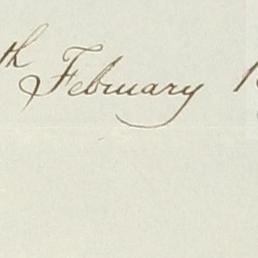 th February 1